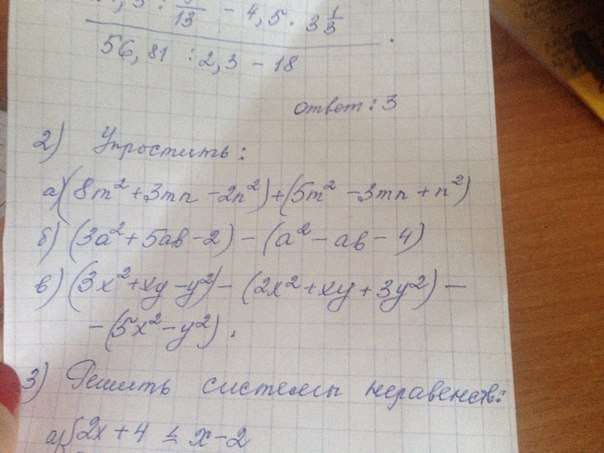 ,5 : /13 - 4,5 · 3 1/3
56,81 : 2,3 - 18
ответ: 3
2) Упростить:
а) (8m² + 3mn - 2n²) + (5m² - 3mn + n²)
б) (3a² + 5ab - 2) - (a² - ab - 4)
в) (3x² + xy - y²) - (2x² + xy + 3y²) -
- (5x² - y²).
3) Решить системы неравенств:
а) { 2x + 4 ≤ x - 2